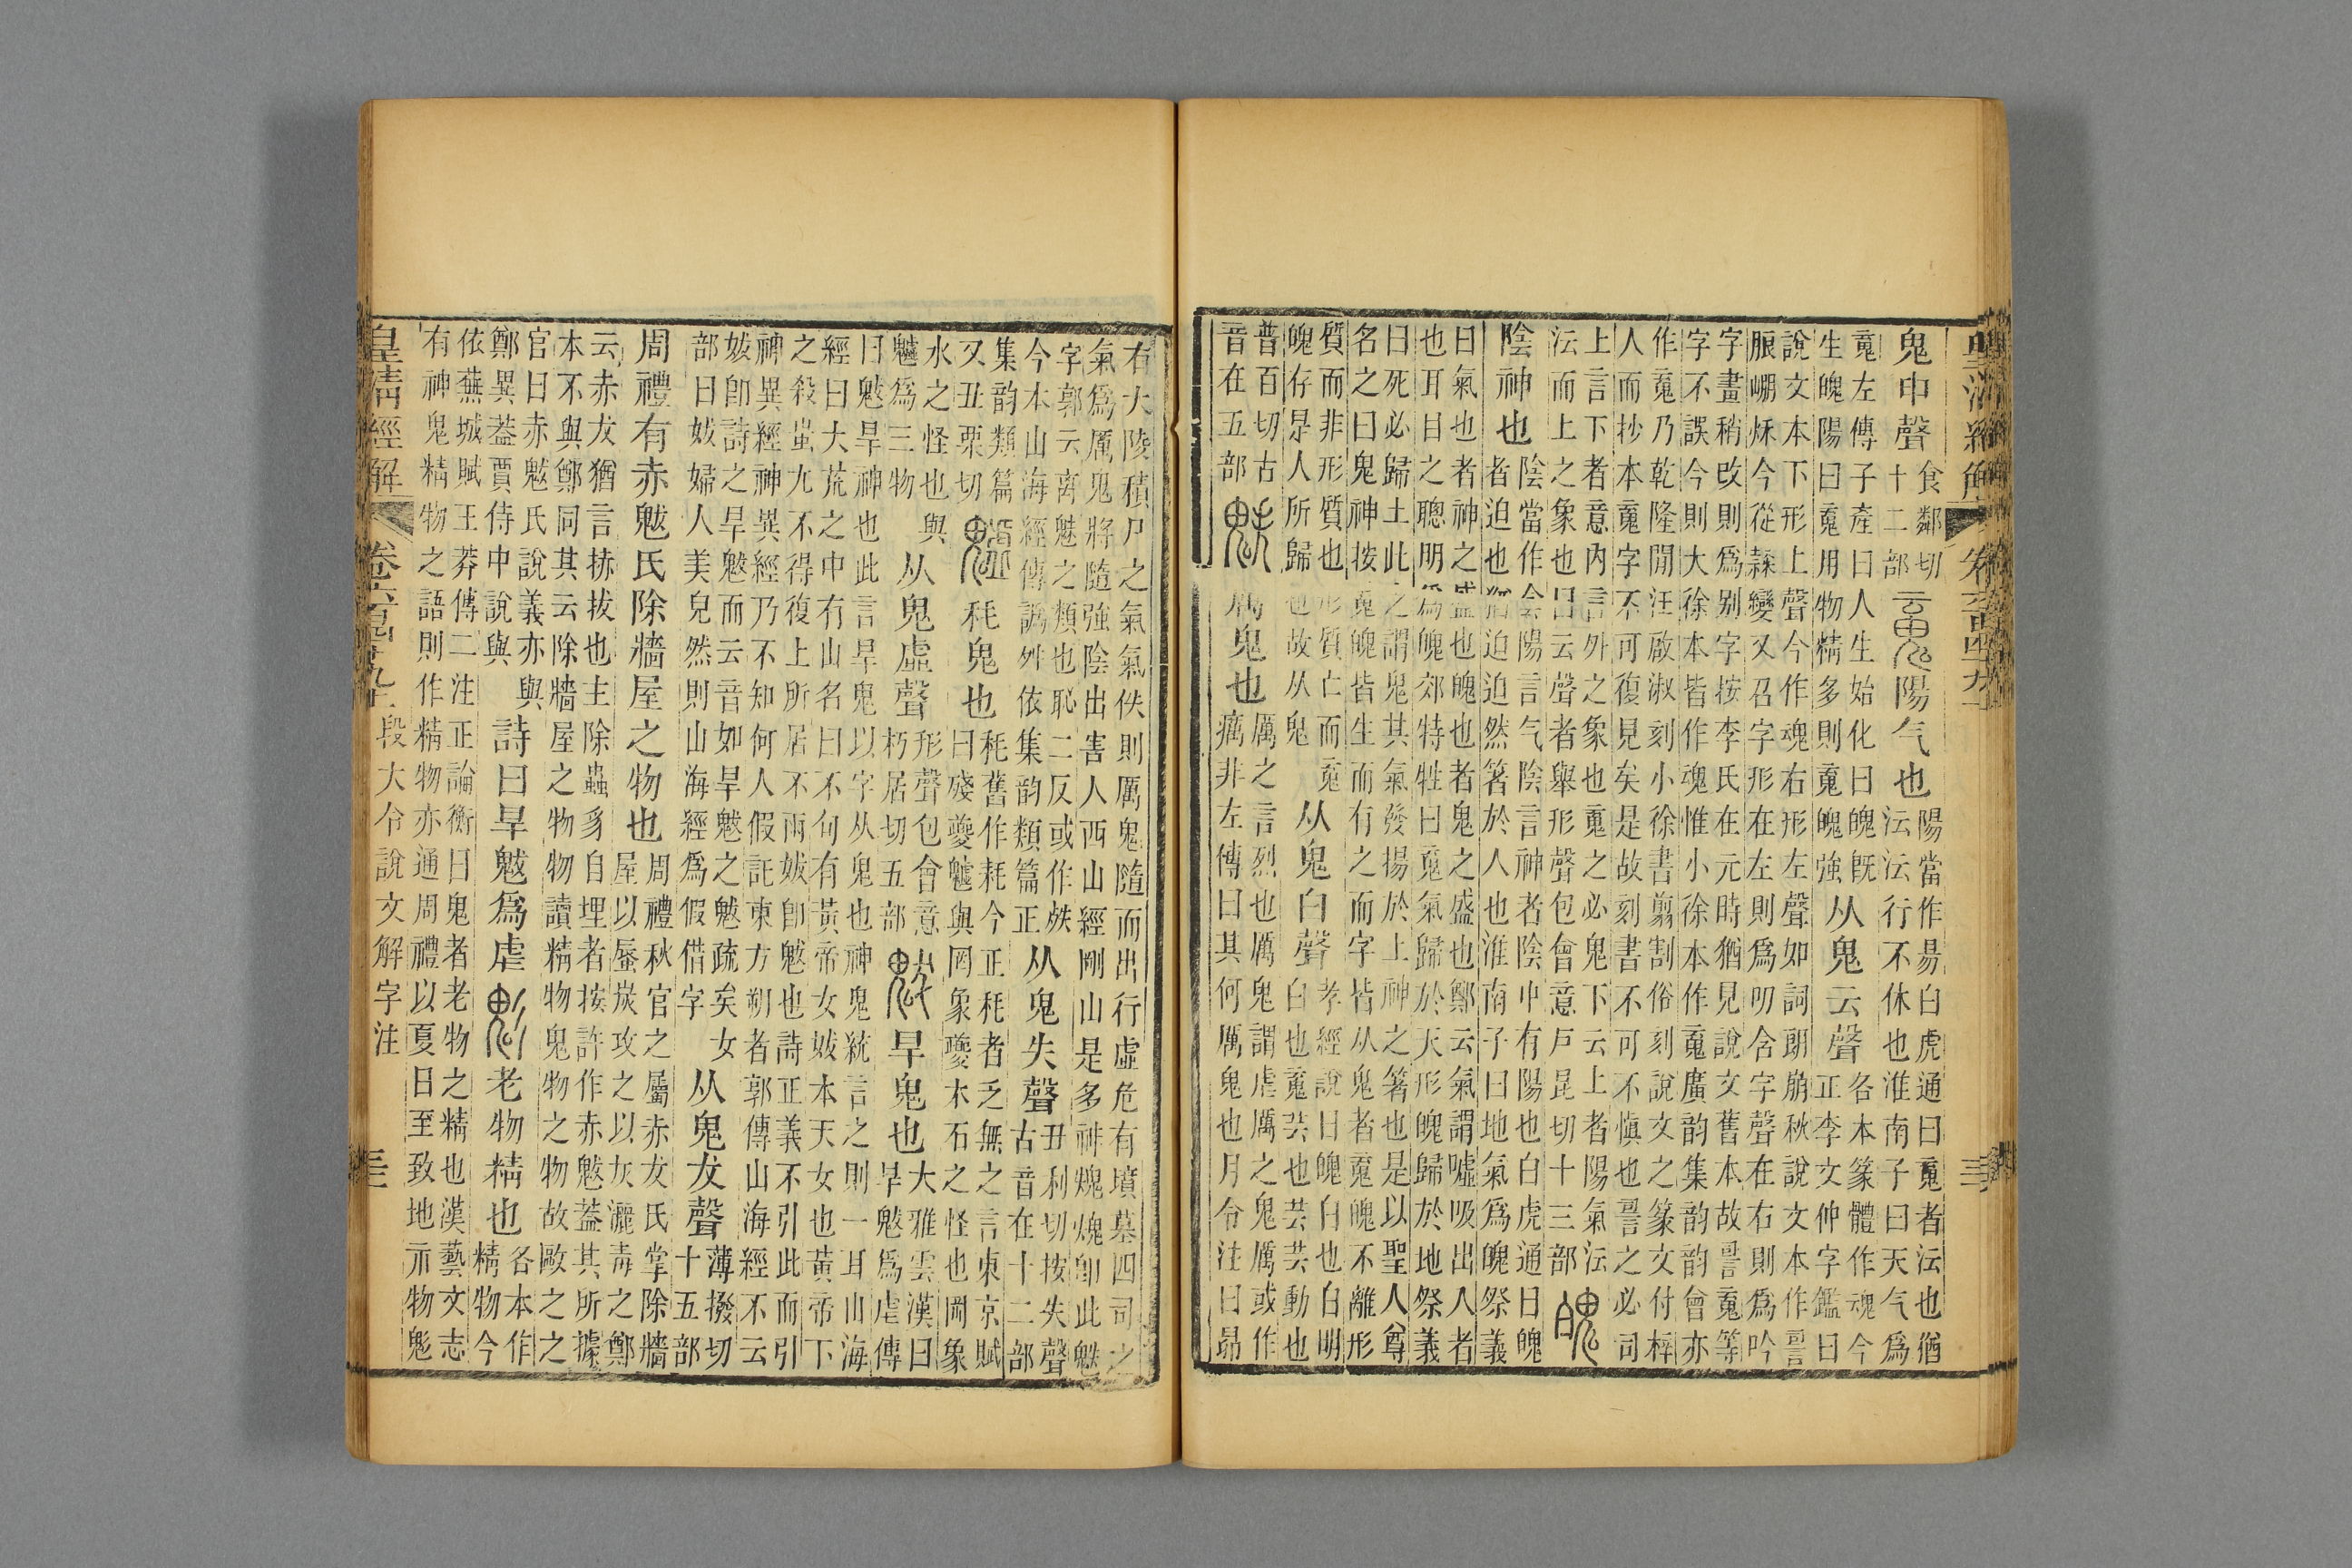 皇清經解
鬼申聲食鄰切十二部䰟陽气也陽當作昜白虎通曰䰟者沄也猶沄沄行不休也淮南子曰天气爲
䰟左傳子產曰人生始化曰魄魄旣生魄陽曰䰟用物精多則䰟魄強从鬼云聲各本篆體作魂今正李文仲字鑑曰
說文本下形上聲今作魂右形左聲如詞朗崩秋說文本作䛐朖嵎烁今從隸變又召字形在左則爲叨含字聲在右則爲吟
字畫稍改則爲别字按李氏在元時猶見說文舊本故䛐䰟等字不誤今則大徐本皆作魂惟小徐本作䰟廣韵集韵韵會亦
作䰟乃乾隆閒汪啟淑刻小徐書剪割俗刻說文之篆文付梓人而抄本䰟字不可復見矣是故刻書不可不愼也䛐之必司
上言下者意內言外之象也䰟之必鬼下云上者陽氣沄沄而上之象也日云聲者舉形聲包會意戸昆切十三部魄
陰神也陰當作侌陽言气陰言神者陰中有陽也白虎通曰魄者迫也猶迫迫然箸於人也淮南子曰地氣爲魄祭義
曰氣也者神之盛也魄也者鬼之盛也鄭云氣謂噓吸出入者也耳目之聰明爲魄郊特牲曰䰟氣歸於天形魄歸於地祭義
曰死必歸土此之謂鬼其氣發揚於上神之箸也是以聖人尊名之曰鬼神按䰟魄皆生而有之而字皆从鬼者䰟魄不離形
質而非形質也形質亡而䰟魄存是人所歸也故从鬼从鬼白聲孝經說曰魄白也白明也䰟芸也芸芸動也
普百切古音在五部魅厲鬼也厲之言烈也厲鬼謂虐厲之鬼厲或作癘非左傳曰其何厲鬼也月令注曰昴
右大陵積尸之氣氣佚則厲鬼隨而出行虛危有墳墓四司之氣爲厲鬼將隨強陰出害人西山經剛山是多神䰡䰡卽此魅
字郭云离魅之類也恥二反或作𩲡今本山海經傳譌舛依集韵類篇正从鬼失聲丑利切按失聲古音在十二部
集韵類篇又丑栗切魖秏鬼也秏舊作耗今正秏者乏無之言東京賦曰殘夔魖與罔象夔木石之怪也罔象
水之怪也與魖爲三物从鬼虛聲形聲包會意朽居切五部魃旱鬼也大雅雲漢曰旱魃爲虐傳
曰魃旱神也此言旱鬼以字从鬼也神鬼統言之則一耳山海經曰大荒之中有山名曰不句有黃帝女妭本天女也黃帝下
之殺蚩尤不得復上所居不雨妭卽魃也詩正義不引此而引神異經神異經乃不知何人假託東方朔者郭傳山海經不云
妭卽詩之旱魃而云音如旱魃之魃疏矣女部曰妭婦人美皃然則山海經爲假借字从鬼犮聲薄撥切十五部
周禮有赤魃氏除牆屋之物也周禮秋官之屬赤犮氏掌除牆屋以蜃炭攻之以灰灑毒之鄭
云赤犮猶言捇拔也主除蟲豸自埋者按許作赤魃葢其所據本不與鄭同其云除牆屋之物物讀精物鬼物之物故歐之之
官曰赤魃氏說義亦與鄭異葢賈侍中說與詩曰旱魃爲虐鬽老物精也各本作精物今
依蕪城賦王莽傳二注正論衡曰鬼者老物之精也漢藝文志有神鬼精物之語則作精物亦通周禮以夏日至致地示物鬽
皇清經解 卷六百四十九上 段大令說文解字注